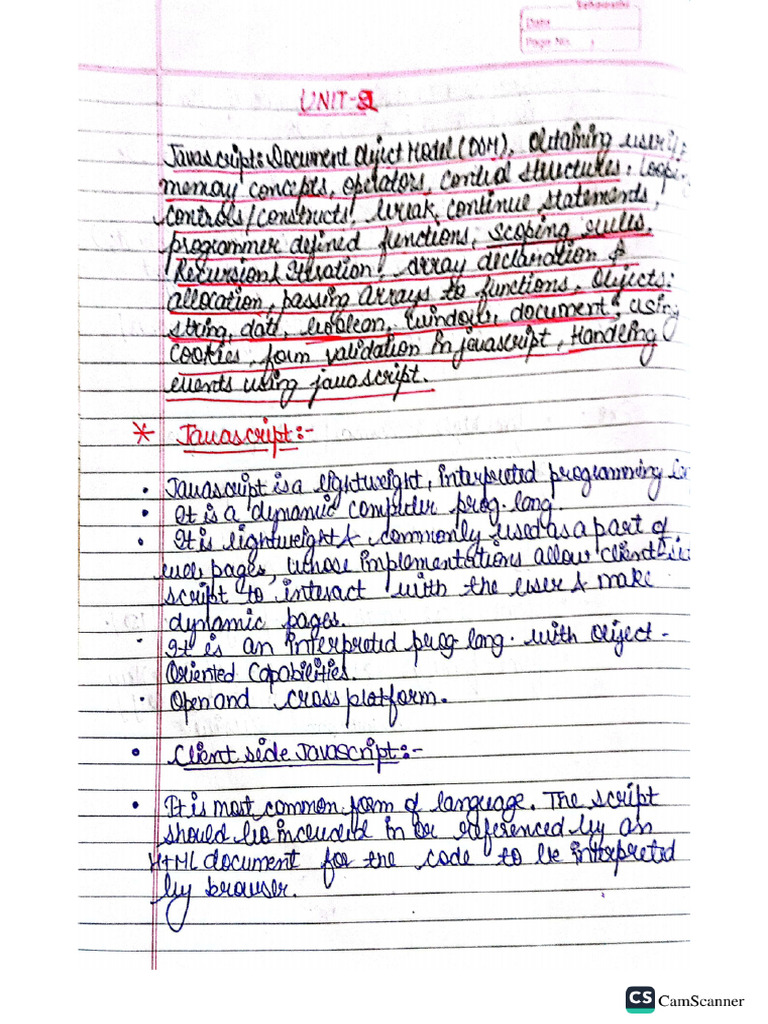 Date
Page No.
UNIT-
Javascript: Document Object Model (DOM), Obtaining user i
memory concepts, operators, control structures, Loopin
controls/constructs, break, continue statements,
programmer defined functions, scoping rules,
Recursion & Iteration, array declaration &
allocation, passing Arrays to functions, Objects:
string, date, boolean, window, document, using
Cookies, form validation in javascript, Handling
events using javascript.
* Javascript:-
• Javascript is a lightweight, interpreted programming
• It is a dynamic computer prog. lang.
• It is lightweight & commonly used as a part of
web pages, whose implementations allow client si
script to interact with the user & make
dynamic pages.
• It is an interpreted prog. lang. with Object-
Oriented Capabilities.
• Open and cross platform.
• Client side Javascript:-
• It is most common form of language. The script
should be included in or referenced by an
HTML document for the code to be interpreted
by browser.
CS CamScanner